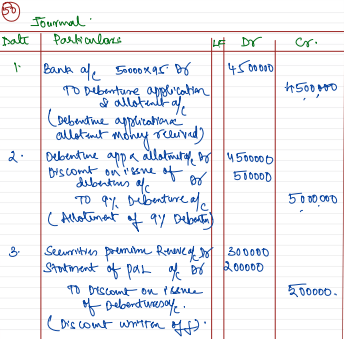 50
Journal.
Date Particulars LF Dr Cr.
1. Bank a/c 50000x95 Dr 4500000
TO Debenture application
& allotment a/c 4500000
(Debenture application
allotment money received)
2. Debenture app & allotment a/c Dr 4500000
Discount on issue of
debenture a/c Dr 500000
TO 9% Debenture a/c 5000000
(Allotment of 9% Debentn)
3. Securities premium Reserve a/c Dr 300000
Statment of p&L a/c Dr 200000
TO Discount on issue
of Debentures a/c. 500000.
(Discount written off).